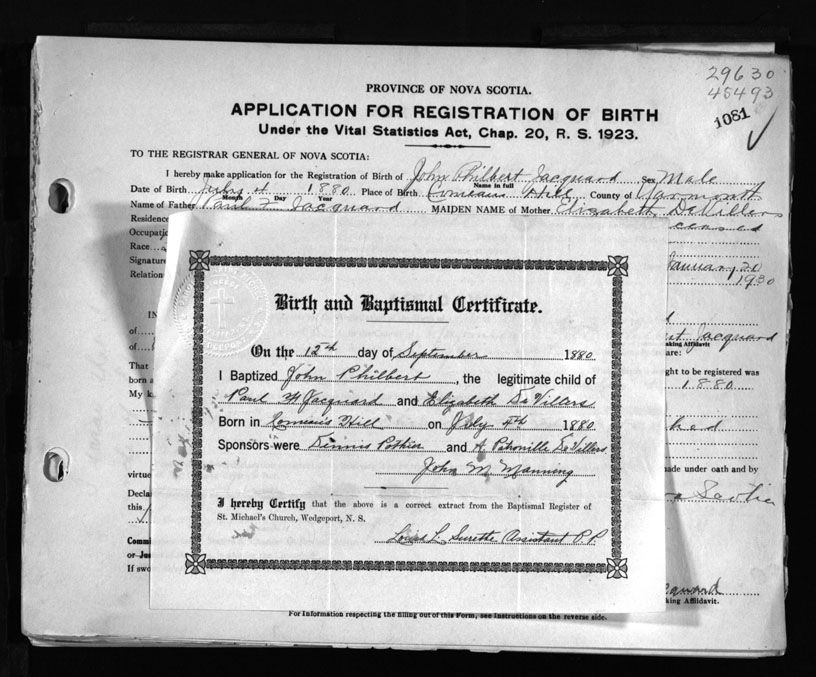 29630
45493
1081
PROVINCE OF NOVA SCOTIA.
APPLICATION FOR REGISTRATION OF BIRTH
Under the Vital Statistics Act, Chap. 20, R. S. 1923.
TO THE REGISTRAR GENERAL OF NOVA SCOTIA:
I hereby make application for the Registration of Birth of John Philbert Jacquard Sex Male
Name in full
Date of Birth July 4 1880 Place of Birth Comeaus Hill County of Yarmouth
Month Day Year
Name of Father Paul Jacquard MAIDEN NAME of Mother Elizabeth DeVillers
Residence
Occupati
Race
Signature January 20
Relation 1930
Birth and Baptismal Certificate.
On the 12th day of September 1880
I Baptized John Philbert, the legitimate child of
Paul Jacquard and Elizabeth DeVillers
Born in Comeau's Hill on July 4th 1880
Sponsors were Dennis Pothier and A Petronille DeVillers
John M Manning
I hereby Certify that the above is a correct extract from the Baptismal Register of
St. Michael's Church, Wedgeport, N. S.
Louis L. Surette Assistant P.P.
IN
of
of Jacquard
king Affidavit
are:
That
born a
ght to be registered was
1880
My k
hed
made under oath and by
virtue
Decla
this
Scotia
Commi
or Jus
If swo
king Affidavit.
For Information respecting the filling out of this Form, see Instructions on the reverse side.